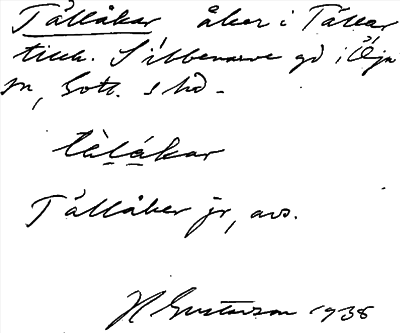 Tållåkar åker i Tållar
tillh. Sibbenarve gd i Öja
sn, Gotl. S hd.
tå̀låkar
Tållåker jr, avs.
H Gustavson 1938